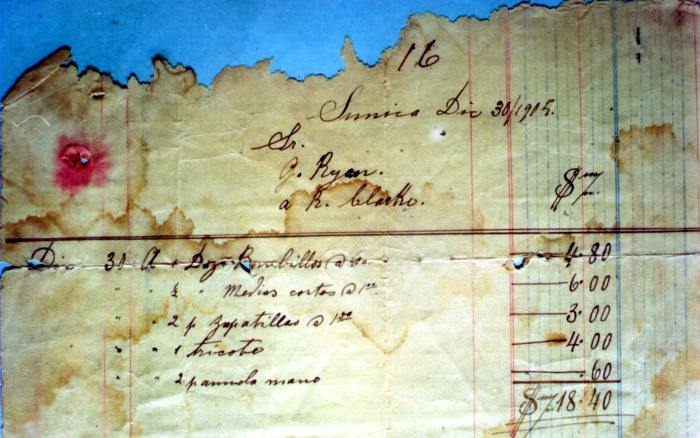 16
Sunica Dic 30/1905.
Sr.
P. Ryan.
a R. Clarke.
$ m/n.
Dic 30 A 1 Doz. Bombillos a 40 4.80
" " ½ " Medias cortas @ 1.00 6.00
" " 2 p Zapatillas @ 1.50 3.00
" " 1 tricota 4.00
" " 2 panuelo mano .60
$ m/n 18.40